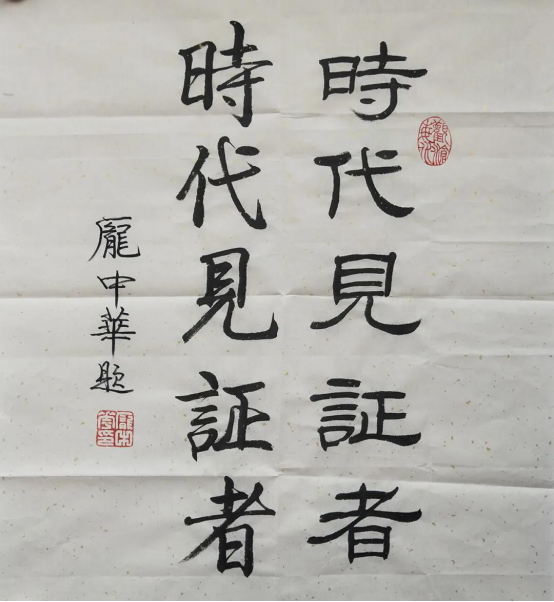 時代見証者
時代見証者
龐中華題